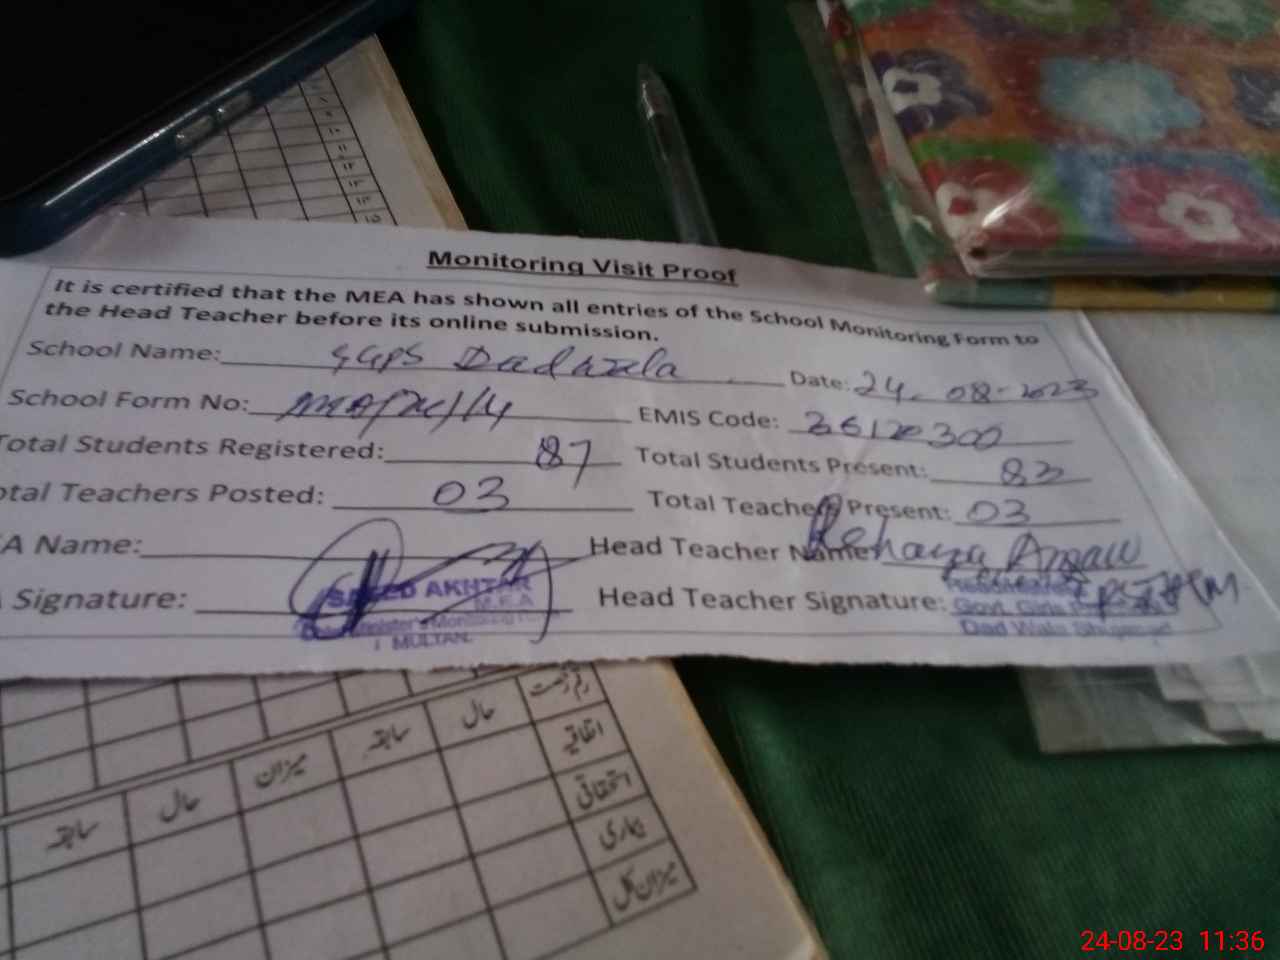 Monitoring Visit Proof
It is certified that the MEA has shown all entries of the School Monitoring Form to
the Head Teacher before its online submission.
School Name: GGPS Dadwala Date: 24-08-2023
School Form No: EMIS Code: 36120300
Total Students Registered: 87 Total Students Present: 83
otal Teachers Posted: 03 Total Teachers Present: 03
A Name: Head Teacher Name:
Signature: Head Teacher Signature:
SAEED AKHTAR
M.E.A
MULTAN.
Govt. Girls
Dad Wala
رقم رخصت
سابقہ حال میزان سابقہ حال اتفاقیہ
استحقاقی
بیماری
میزان کل
24-08-23 11:36